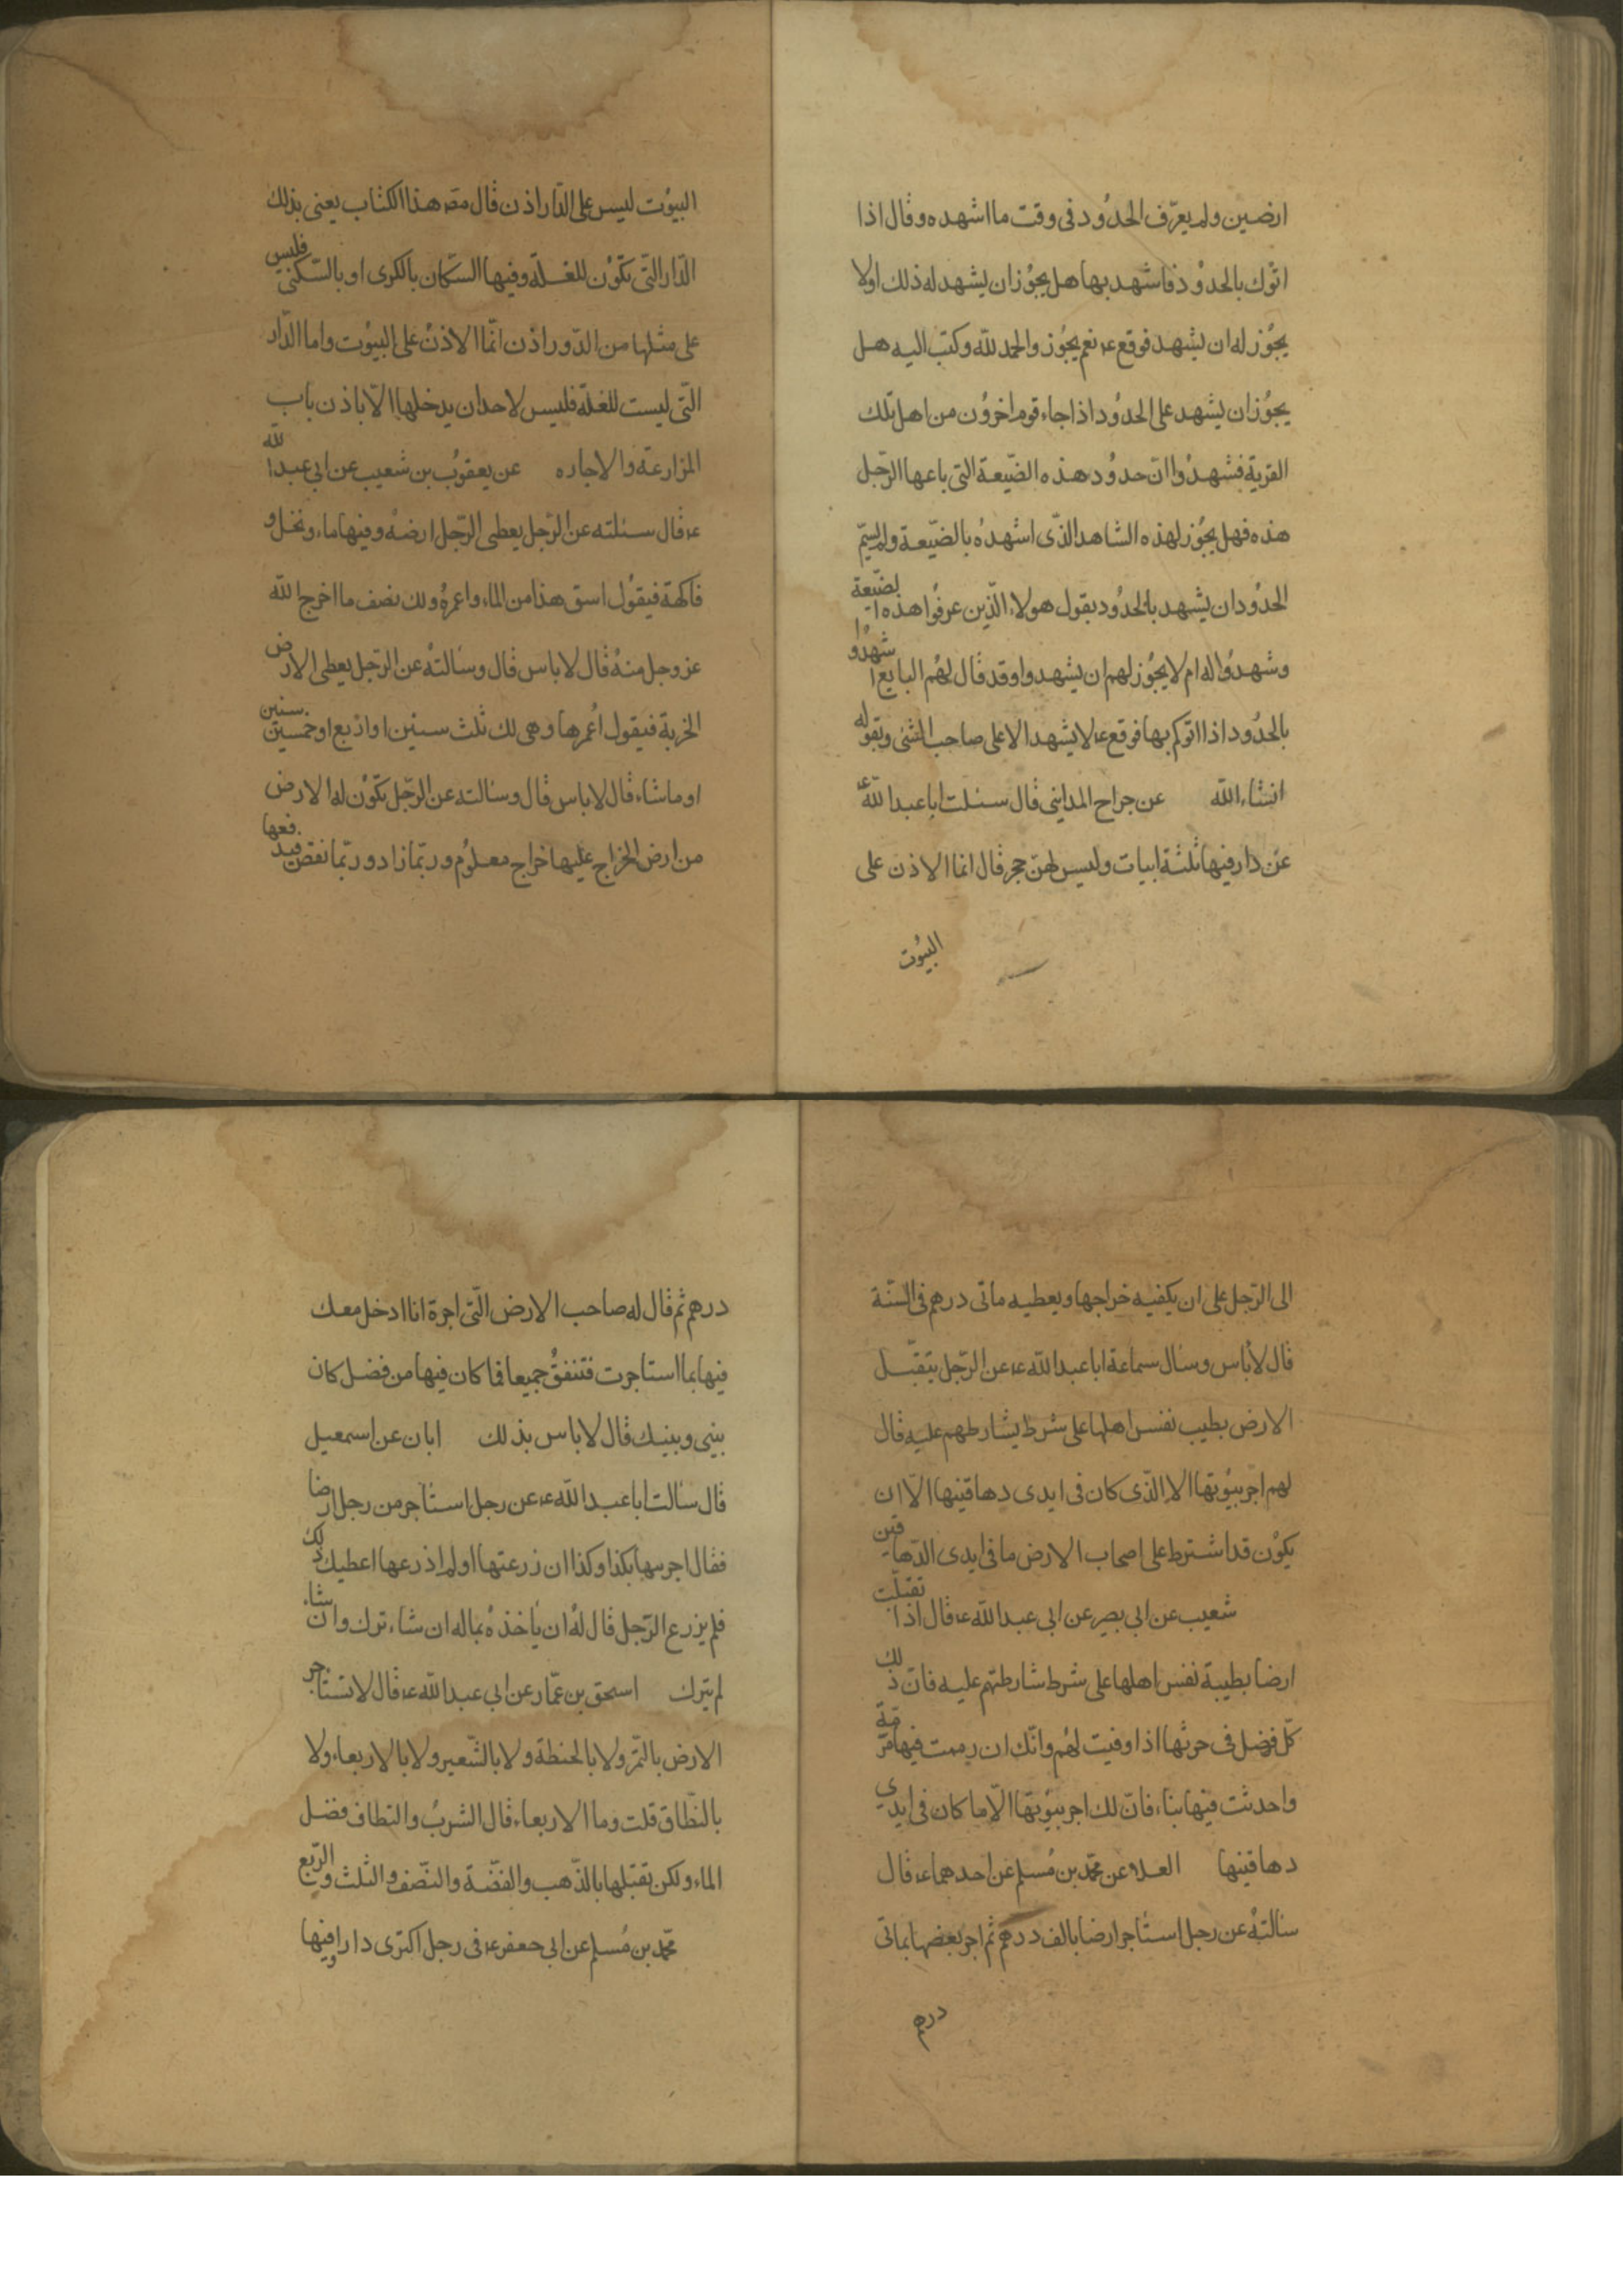 ارضين ولم يعرّف الحدُود فى وقت ما اشهده وقال اذا
اتّوك بالحدوُد فاشهد بها هل يجوُز ان يشهد له ذلك اولا
يجوُز له ان يشهد فوقع ع نعم يجوُز والحمد للّه وكتب اليه هل
يجوُز ان يشهد على الحدوُد اذا جاء قوم اخروُن من اهل تلك
القرية فشهدوُا انّ حدوُد هذه الضّيعة التى باعها الرّجل
هذه فهل يجوُز لهذه الشاهد الذّى اشهدهُ بالضّيعة ولم يسمّ
الحدوُد ان يشهد بالحدوُد بقول هولاء الّذين عرفوُا هذه الضّيعة
وشهدوُا له ام لا يجوُز لهم ان يشهدوا وقد قال لهُم البايع اشهدُوا
بالحدُود اذا اتوكم بها فوقع ع لا يشهد الا على صاحب الشئ وبقوله
انشاء اللّه عن جراح المداينى قال سئلت ابا عبد اللّه ع
عن دار فيها ثلثة ابيات وليس لهنّ حجر قال انما الاذن على
البيُوت
البيوُت ليس على الدّار اذن قال مصّ هذا الكتاب يعنى بذلك
الدّار التّى تكوُن للغلّة وفيها السّكان بالكرى او بالسّكنى فليس
على مثلها من الدّور اذن انّما الاذنُ على البيوُت واما الدّار
التّى ليست للغلّة فليس لاحد ان يدخلها الّا باذن باب
المزارعة والاجاره عن يعقوُب بن شعيب عن ابى عبد اللّه
ع قال سئلته عن الرّجل يعطى الرّجل ارضهُ وفيها ماء ونخل و
فاكهة فيقوُل اسق هذا من الماء واعمرهُ ولك نصف ما اخرج اللّه
عز وجل منهُ قال لا باس قال وسالتهُ عن الرّجل يعطى الارض
الخربة فيقول اُعمرها وهى لك ثلث سنين او اربع او خمس سنين
او ما شاء قال لا باس قال وسالته عن الرّجل تكوُن له الارض
من ارض الخراج عليها خراج معلوُم وربّما زاد وربّما نقص فيدفعها
الى الرّجل على ان يكفيه خراجها ويعطيه مأتى درهم فى السّنة
قال لا بأس وسال سماعة ابا عبد اللّه ع عن الرّجل يتقبّل
الارض بطيب نفس اهلها على شرط يشارطهم عليه قال
لهم اجر بيوُتها الا الذّى كان فى ايدى دهاقينها الّا ان
يكوُن قد اشترط على اصحاب الارض ما فى ايدى الدّهاقين
شعيب عن ابى بصير عن ابى عبد اللّه ع قال اذا تقبّلت
ارضا بطيبة نفس اهلها على شرط شارطتهم عليه فانّ ذلك
كلّ فضل فى حرثها اذا وفيت لهُم وانّك ان رممت فيها مرّمة
واحدثت فيها بناء فانّ لك اجر بيوُتها الّا ما كان فى ايدى
دهاقينها العلاء عن محمّد بن مُسلم عن احدهما ع قال
سالتهُ عن رجل استاجر ارضا بالف درهم ثم اجر بعضها بمأتى
درهم
درهم ثم قال له صاحب الارض الّتى اجره انا ادخل معك
فيها بما استاجرت فتنفقُ جميعا فما كان فيها من فضل كان
بينى وبينك قال لا باس بذلك ابان عن اسمعيل
قال سالت ابا عبد اللّه ع عن رجل استاجر من رجل ارضا
فقال اجرنيها بكذا وكذا ان زرعتها او لم ازرعها اعطيك ذلك
فلم يزرع الرّجل قال لهُ ان ياخذهُ بماله ان شاء ترك وان شاء
لم يترك اسحق بن عمّار عن ابى عبد اللّه ع قال لا تستاجر
الارض بالتّمر ولا بالحنطة ولا بالشّعير ولا بالاربعاء ولا
بالنّطاق قلت وما الاربعاء قال الشربُ والنطاف فضل
الماء ولكن تقبّلها بالذّهب والفضّة والنّصف والثلث والرّبع
محمّد بن مُسلم عن ابى جعفر ع فى رجل اكترى دارا وفيها